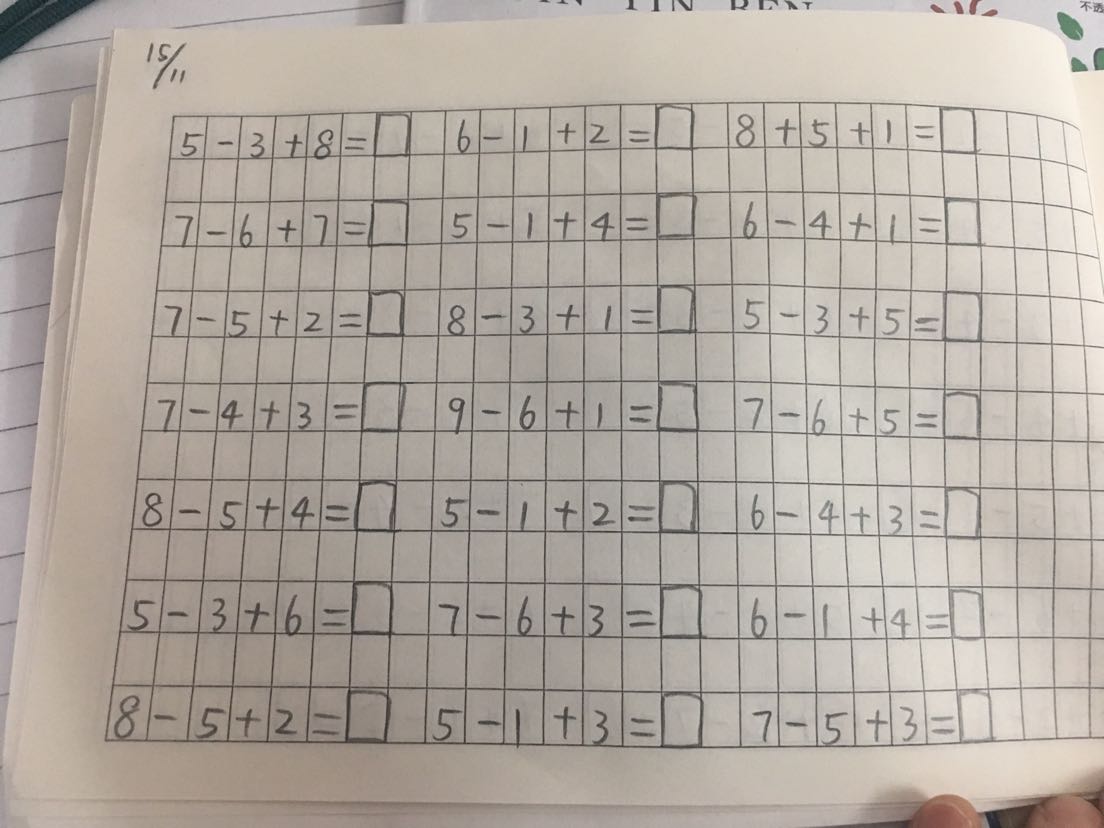 YIN REN
不透
15/11
5-3+8=□ 6-1+2=□ 8+5+1=□
7-6+7=□ 5-1+4=□ 6-4+1=□
7-5+2=□ 8-3+1=□ 5-3+5=□
7-4+3=□ 9-6+1=□ 7-6+5=□
8-5+4=□ 5-1+2=□ 6-4+3=□
5-3+6=□ 7-6+3=□ 6-1+4=□
8-5+2=□ 5-1+3=□ 7-5+3=□